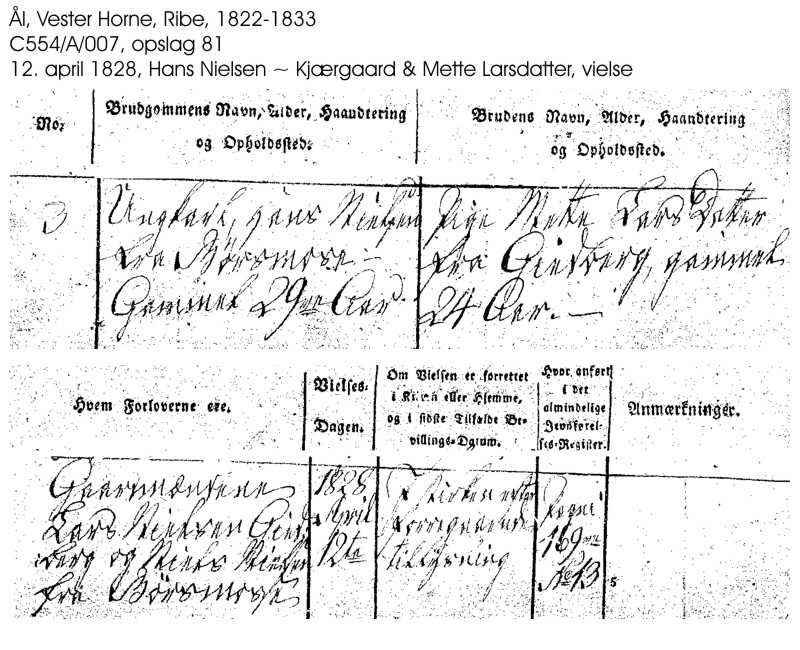 Ål, Vester Horne, Ribe, 1822-1833
C554/A/007, opslag 81
12. april 1828, Hans Nielsen ~ Kjærgaard & Mette Larsdatter, vielse
No:
Brudgommens Navn, Alder, Haandtering
og Opholdssted.
Brudens Navn, Alder, Haandtering
og Opholdssted.
3
Ungkarl, Hans Nielsen
fra Börsmose
Gammel 29ve Aar.
Pige Mette Lars Datter
fra Giedberg, gammel
24 Aar.
Hvem Forloverne ere.
Vielses-
Dagen.
Om Vielsen er forrettet
i Kirken eller Hjemme,
og i sidste Tilfælde Be-
villings-Datum.
Hvor anført
i det
almindelige
Jevnførel-
ses-Register.
Anmærkninger.
Gaardmændene
Lars Nielsen Gied-
berg og Niels Nielsen
fra Börsmose
1828
April
12te
I Kirken efter
foregaaende
tillysning
Pagni
169
No 13
5